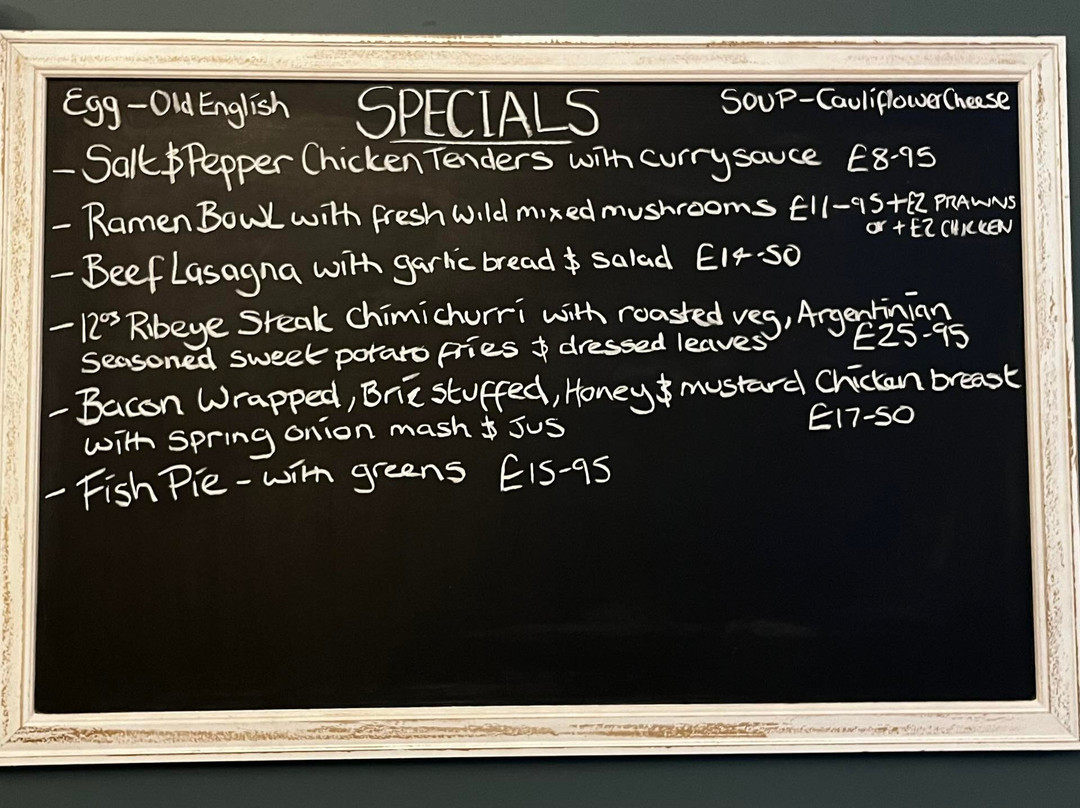 Egg - Old English SPECIALS SOUP - Cauliflower Cheese
- Salt & Pepper Chicken Tenders with curry sauce £8-95
- Ramen Bowl with fresh wild mixed mushrooms £11-95 + £2 PRAWNS
or + £2 CHICKEN
- Beef Lasagna with garlic bread & salad £14-50
- 12ozs Ribeye Steak Chimichurri with roasted veg, Argentinian
seasoned sweet potato fries & dressed leaves £25-95
- Bacon Wrapped, Brie stuffed, Honey & mustard Chicken breast
with spring onion mash & Jus £17-50
- Fish Pie - with greens £15-95